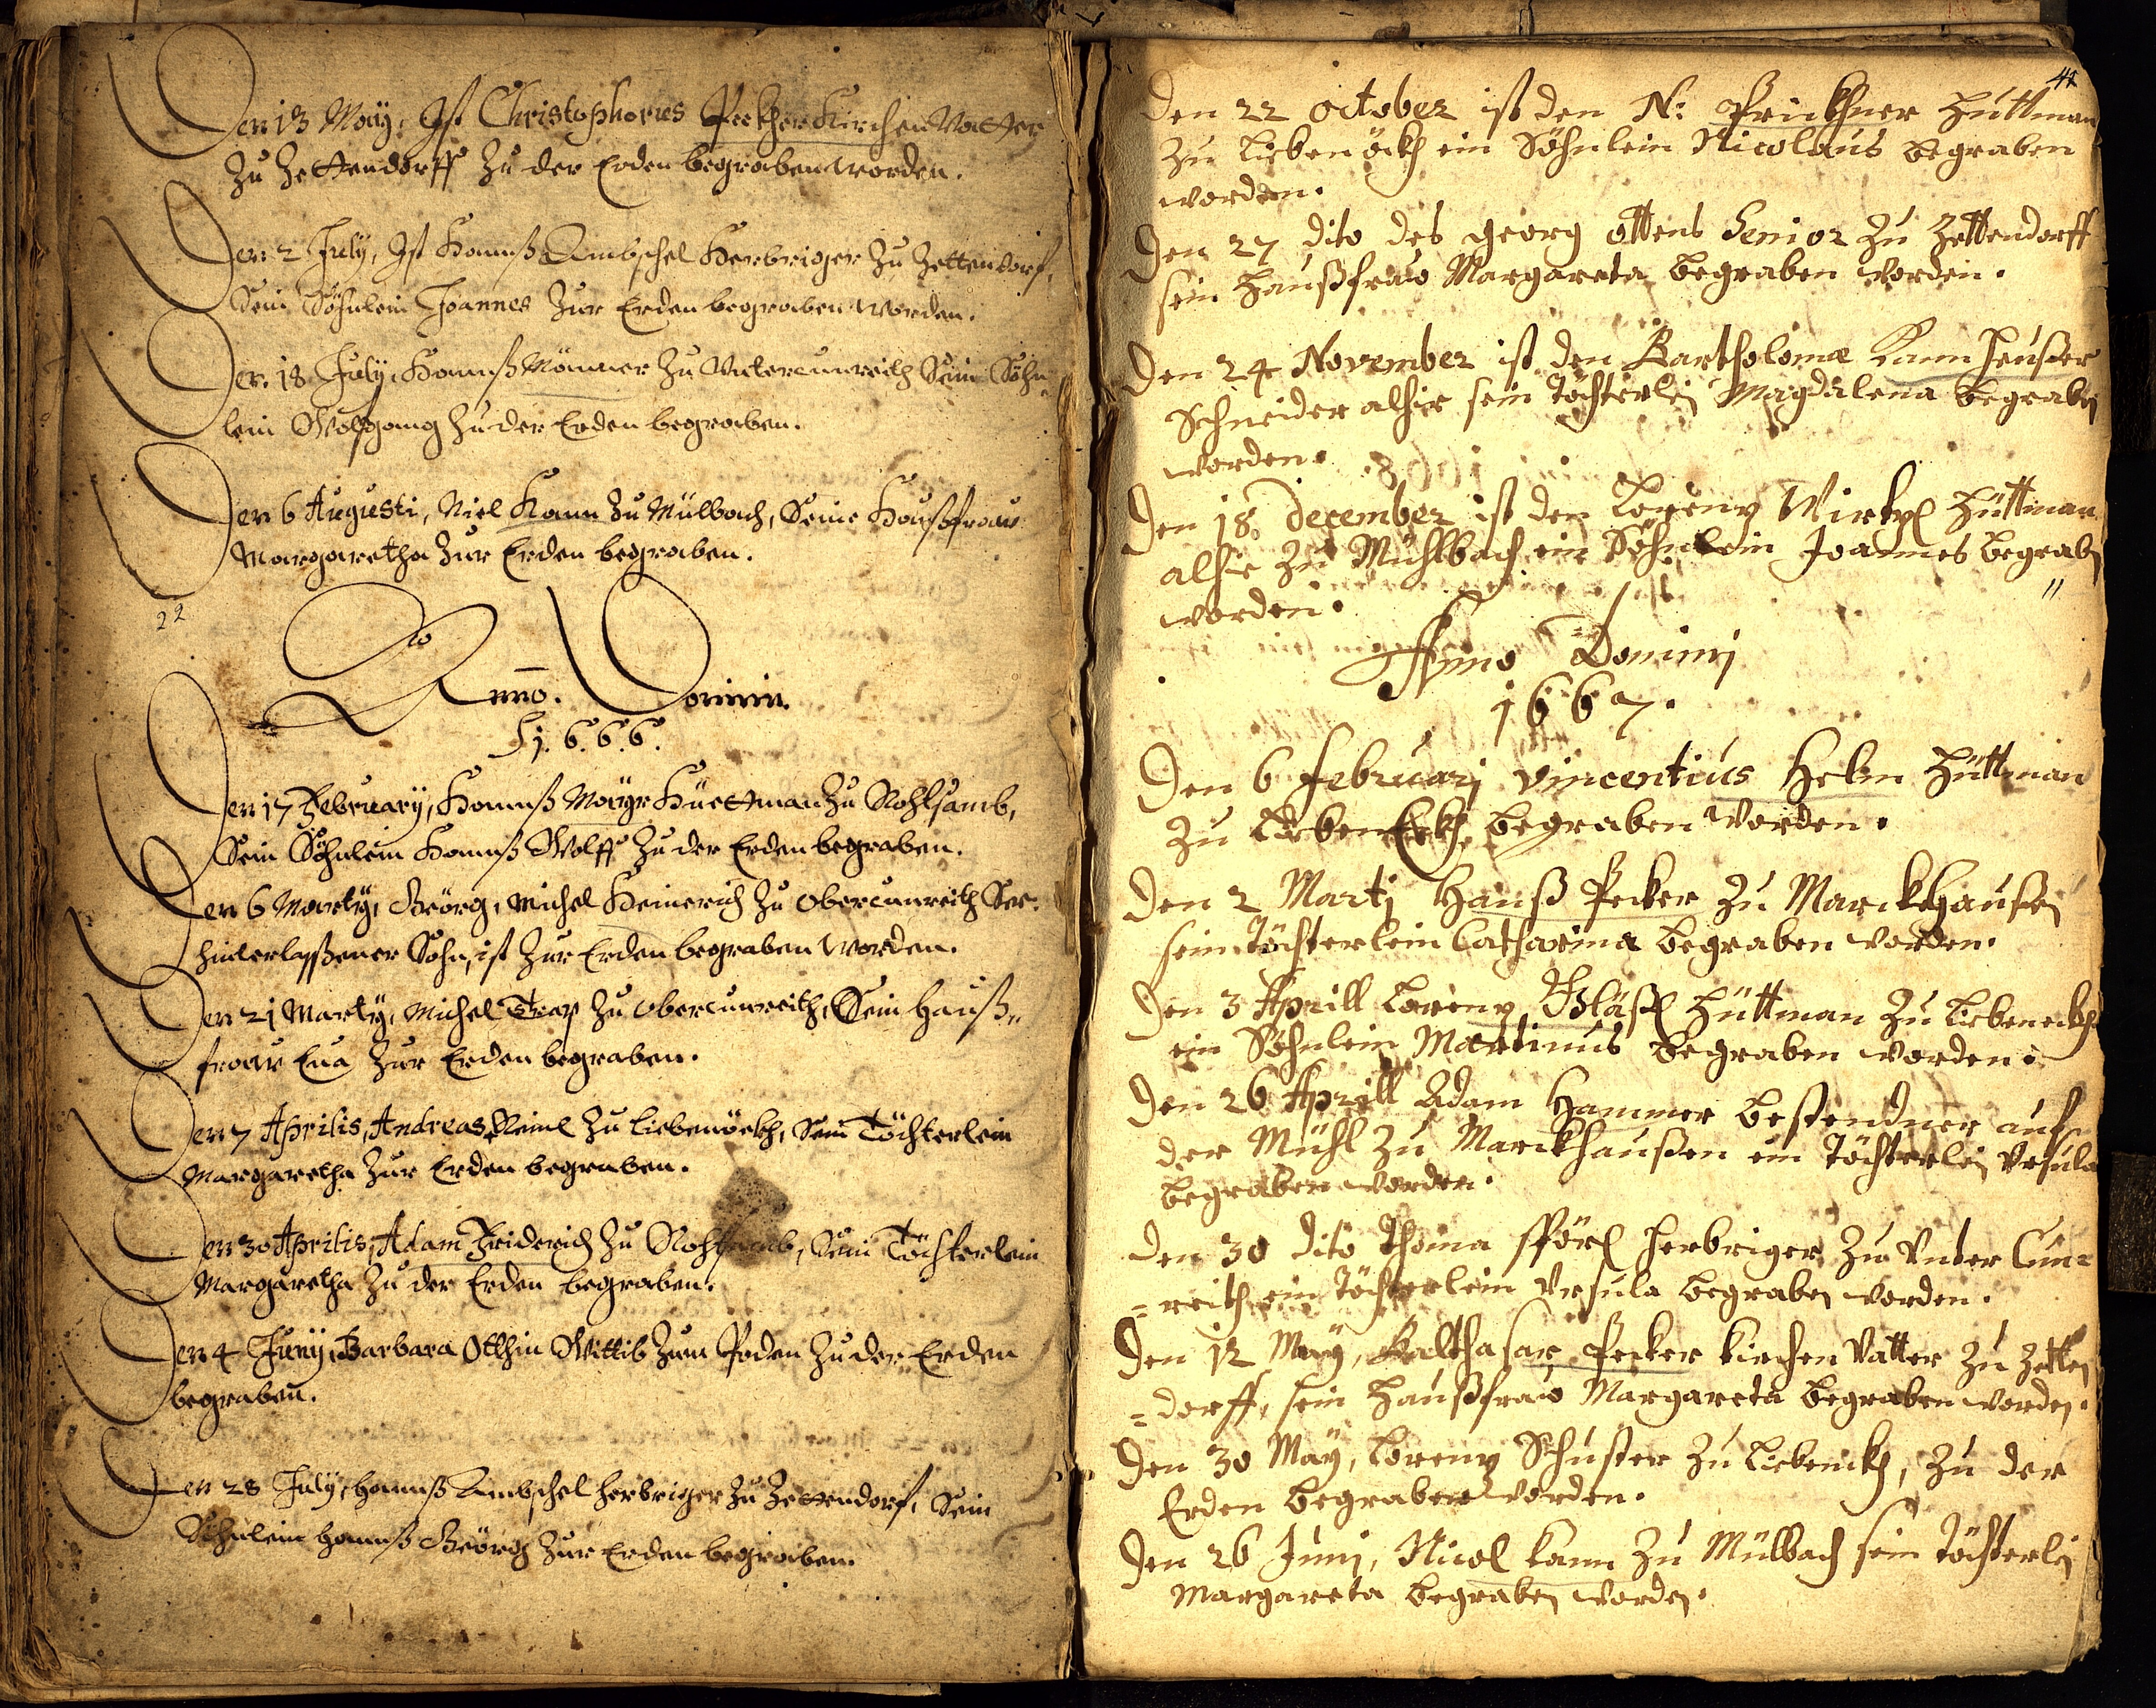 Den 13 May, Ist Christophorus Peckher Kirchen Vatter
Zu Zettendorff Zu der Erden begraben worden.
Den 2 July, Ist Hannß Ambschel Herbriger Zu Zettendorf,
Sein Söhnlein Joannes Zur Erden begraben worden.
Den 18 July, Hannß Mönner Zu Untercunreith Sein Söhn
lein Wolfgang Zu der Erden begraben.
Den 6 Augusti, Niel Kann Zu Mülbach, Seine Haußfraw
Margaretha Zur Erden begraben.
22
Anno. Domini.
1.6.6.6.
Den 17 February, Hannß Mayr Hüettman Zu
Sein Söhnlein Hannß Wolff Zu der Erden begraben.
Den 6 Marty, Geörg, Michel Heinerich Zu Obercunreith Ser.
hinterlaßener Sohn, ist Zur Erden begraben worden.
Den 21 Marty, Michel Trap Zu Obercunreith, Sein Hauß„
fraw Eua Zur Erden begraben.
Den 7 Aprilis, Andreas Zu Liebenöckh, Sein Töchterlein
Margaretha Zur Erden begraben.
Den 30 Aprilis, Adam Friderich Zu Sein Töchterlein
Margaretha Zu der Erden begraben.
Den 4 Juny, Barbara Otthin Wittib Zum Zu der Erden
begraben.
Den 28 July, Hannß Ambschel Herbriger Zu Zettendorf, Sein
Söhnlein Hannß Geörg Zur Erden begraben.
41
Den 22 October ist den N: Frickhner Hüttman
Zu Liebenöckh ein Söhnlein Nicolaus begraben
worden.
Den 27 dito des Georg Ottens Senior Zu Zettendorff
sein Haußfraw Margareta begraben worden.
Den 24 November ist den Bartholomæ Kannheußer
Schneider alhie sein töchterlein Magdalena begraben
worden.
Den 18 December ist den Lorenz Wirtzl Hüttman
alhie Zu Mühlbach ein Söhnlein Joannes begraben
worden.
Anno Domini
1667.
Den 6 Februarj Vincentius Helm Hüttman
Zu LiebenEckh begraben worden.
Den 2 Martj Hanß Pecker Zu Marckhaußen
sein Töchterlein Catharina begraben worden.
Den 3 Aprill Lorenz Bläßl Hüttman Zu Liebeneckh
ein Söhnlein Martinus begraben worden.
Den 26 Aprill Adam Hammer bestendner auf
der Mühl Zu Marckhaußen ein Töchterlein Vrsula
begraben worden.
Den 30 dito Thoma Herbriger Zu Vnter Cun=
=reith ein Töchterlein Vrsula begraben worden.
Den 12 May, Balthasar Pecker Kirchen Vatter Zu Zetten
=dorff, sein Haußfraw Margareta begraben worden.
Den 30 May, Lorenz Schuster Zu Liebenckh, Zu der
Erden begraben worden.
Den 26 Junj, Nicol Kann Zu Mülbach sein töchterlein
Margareta begraben worden.